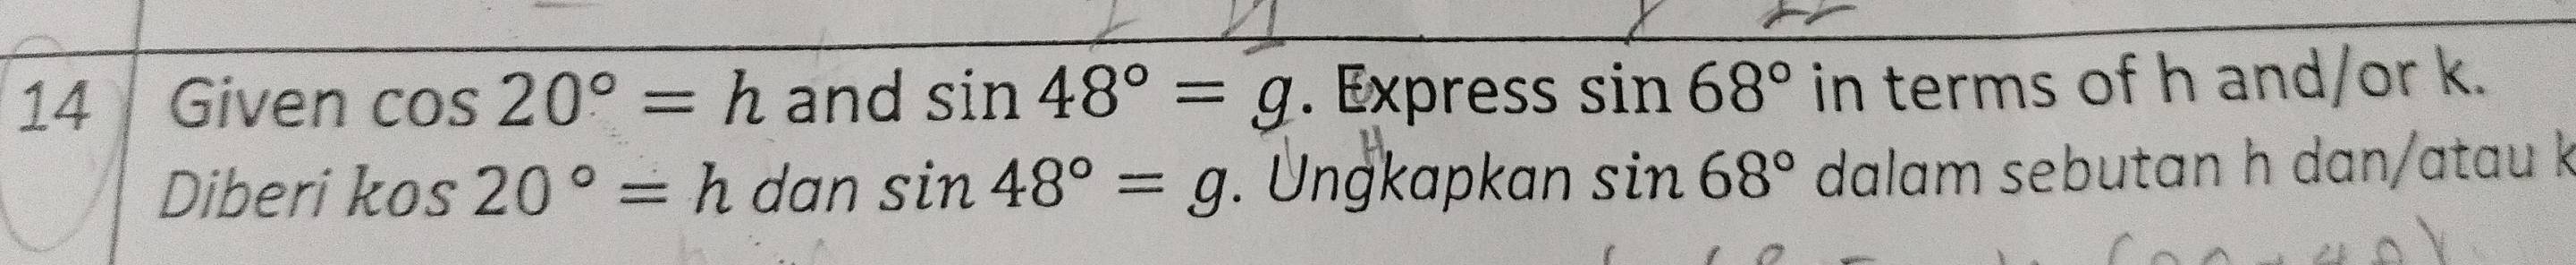 14 Given cos 20° = h and sin 48° = g. Express sin 68° in terms of h and/or k.
Diberi kos 20° = h dan sin 48° = g. Ungkapkan sin 68° dalam sebutan h dan/atau k